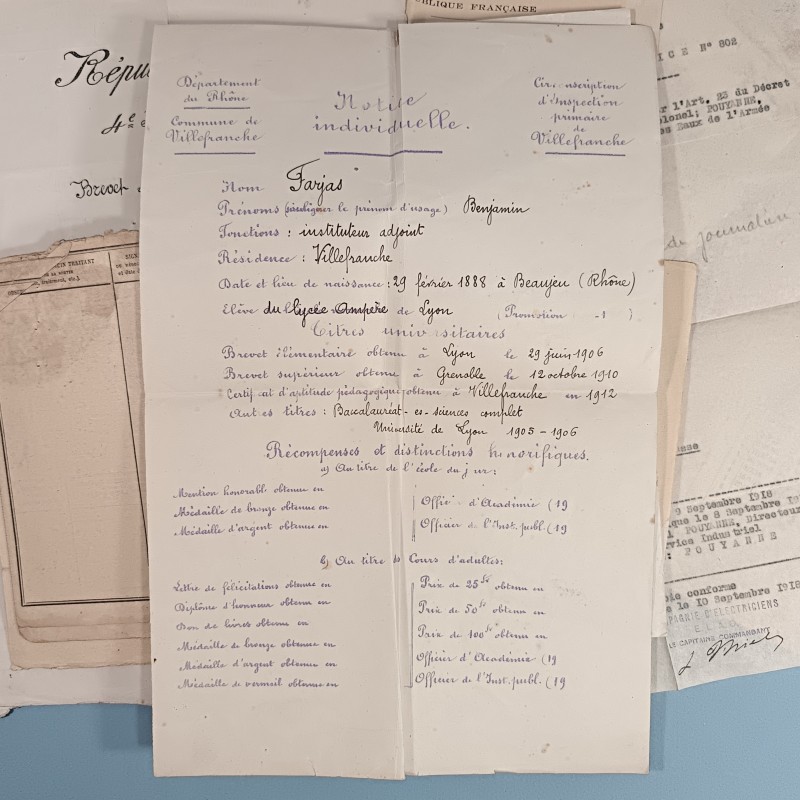 PUBLIQUE FRANÇAISE
ICE N° 802
l'Art. 23 du Décret
olonel; POUYANNE,
Eaux de l'Armée
Répu
4e
Brevet
Département
du Rhône
Commune de
Villefranche
Notice
individuelle.
Circonscription
d'Inspection
primaire
de
Villefranche
Nom Farjas
Prénoms (souligner le prénom d'usage) Benjamin
Fonctions : instituteur adjoint
Résidence : Villefranche
Date et lieu de naissance : 29 février 1888 à Beaujeu (Rhône)
Elève du lycée Ampère de Lyon (Promotion -1 )
Titres universitaires
Brevet élémentaire obtenu à Lyon le 29 juin 1906
Brevet supérieur obtenu à Grenoble le 12 octobre 1910
Certificat d'aptitude pédagogique obtenu à Villefranche en 1912
Autres titres : Baccalauréat-es-sciences complet
Université de Lyon 1905-1906
Récompenses et distinctions honorifiques.
a) Au titre de l'école du jour:
Mention honorable obtenue en
Médaille de bronze obtenue en
Médaille d'argent obtenue en
Officier d'Académie (19
Officier de l'Inst. publ. (19
b) Au titre des Cours d'adultes:
Lettre de félicitations obtenue en
Diplôme d'honneur obtenu en
Don de livres obtenu en
Médaille de bronze obtenue en
Médaille d'argent obtenue en
Médaille de vermeil obtenue en
Prix de 25 fr obtenu en
Prix de 50 fr obtenu en
Prix de 100 fr obtenu en
Officier d'Académie (19
Officier de l'Inst. publ. (19
de journation
9 Septembre 1918
que le 8 Septembre 19
POUYANNE, Directeur
rvice Industriel
: POUYANNE
pie conforme
le 10 Septembre 1918
PAGNIE D'ELECTRICIENS
LE CAPITAINE COMMANDANT